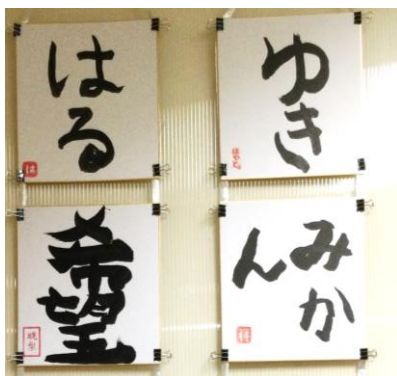 はる
は
ゆき
希望
みか
ん